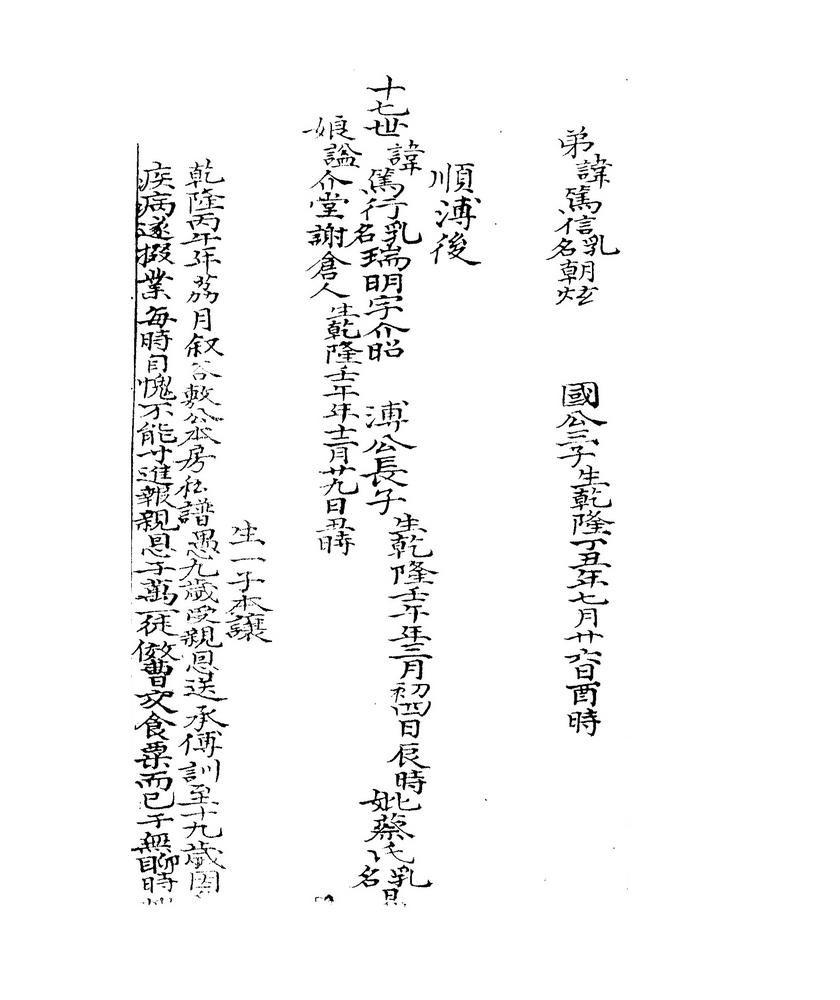 弟諱篤信乳名朝炫 國公三子生乾隆丁丑年七月廿六日酉時
順溥後
十七世諱篤行乳名瑞明字介昭 溥公長子生乾隆壬午年三月初四日辰時妣蔡氏乳名
娘謚介堂謝倉人生乾隆壬午年十二月廿九日丑時
生一子本讓
乾隆丙午年荔月叙 敷公本房私譜愚九歲受親恩送承傅訓至十九歲因
疾病遂掇業每時自愧不能寸進報親恩于萬一徒傚曹交食粟而已于無聊時